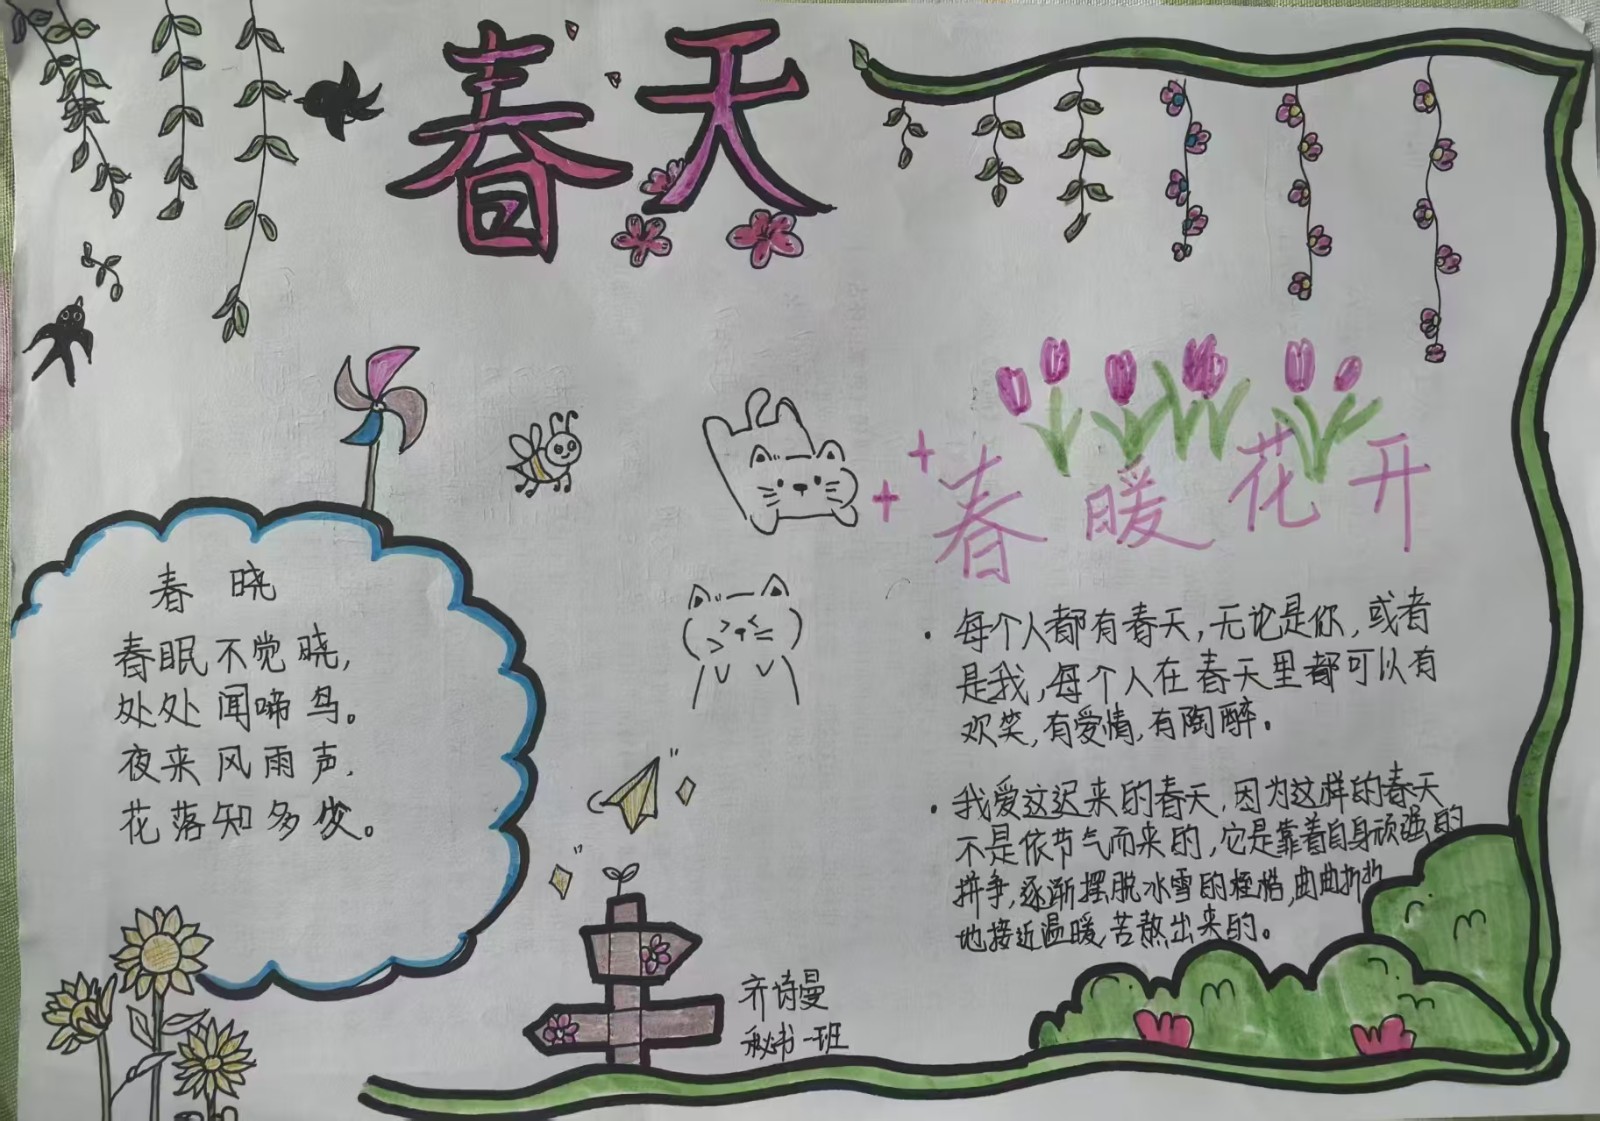 春天
春晓
春眠不觉晓,
处处闻啼鸟。
夜来风雨声.
花落知多少。
春暖花开
每个人都有春天,无论是你,或者
是我,每个人在春天里都可以有
欢笑,有爱情,有陶醉。
我爱这迟来的春天,因为这样的春天
不是依节气而来的,它是靠着自身顽强的
拼争,逐渐摆脱冰雪的桎梏,曲曲折折
地接近温暖,苦熬出来的。
齐诗曼
秘书一班